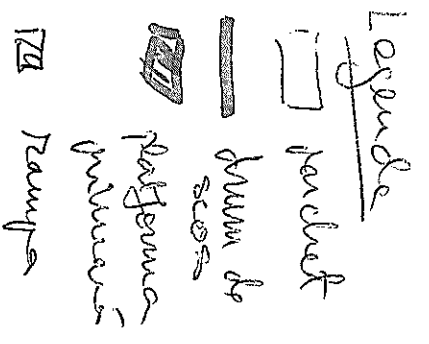 Legenda
parchet
drum de
scos
Platforma
primară
Rampa